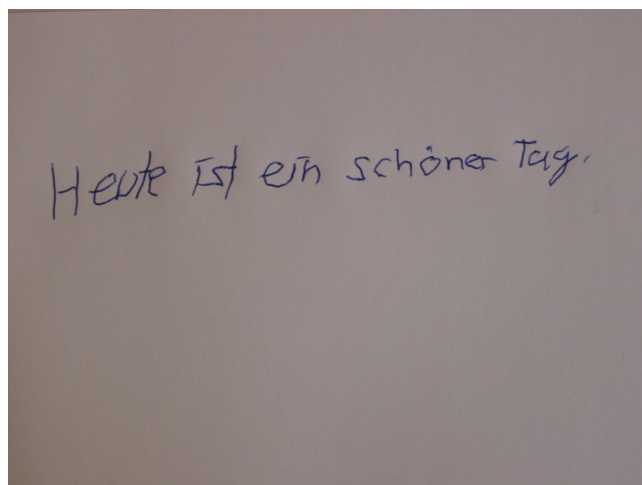 Heute ist ein schöner Tag.